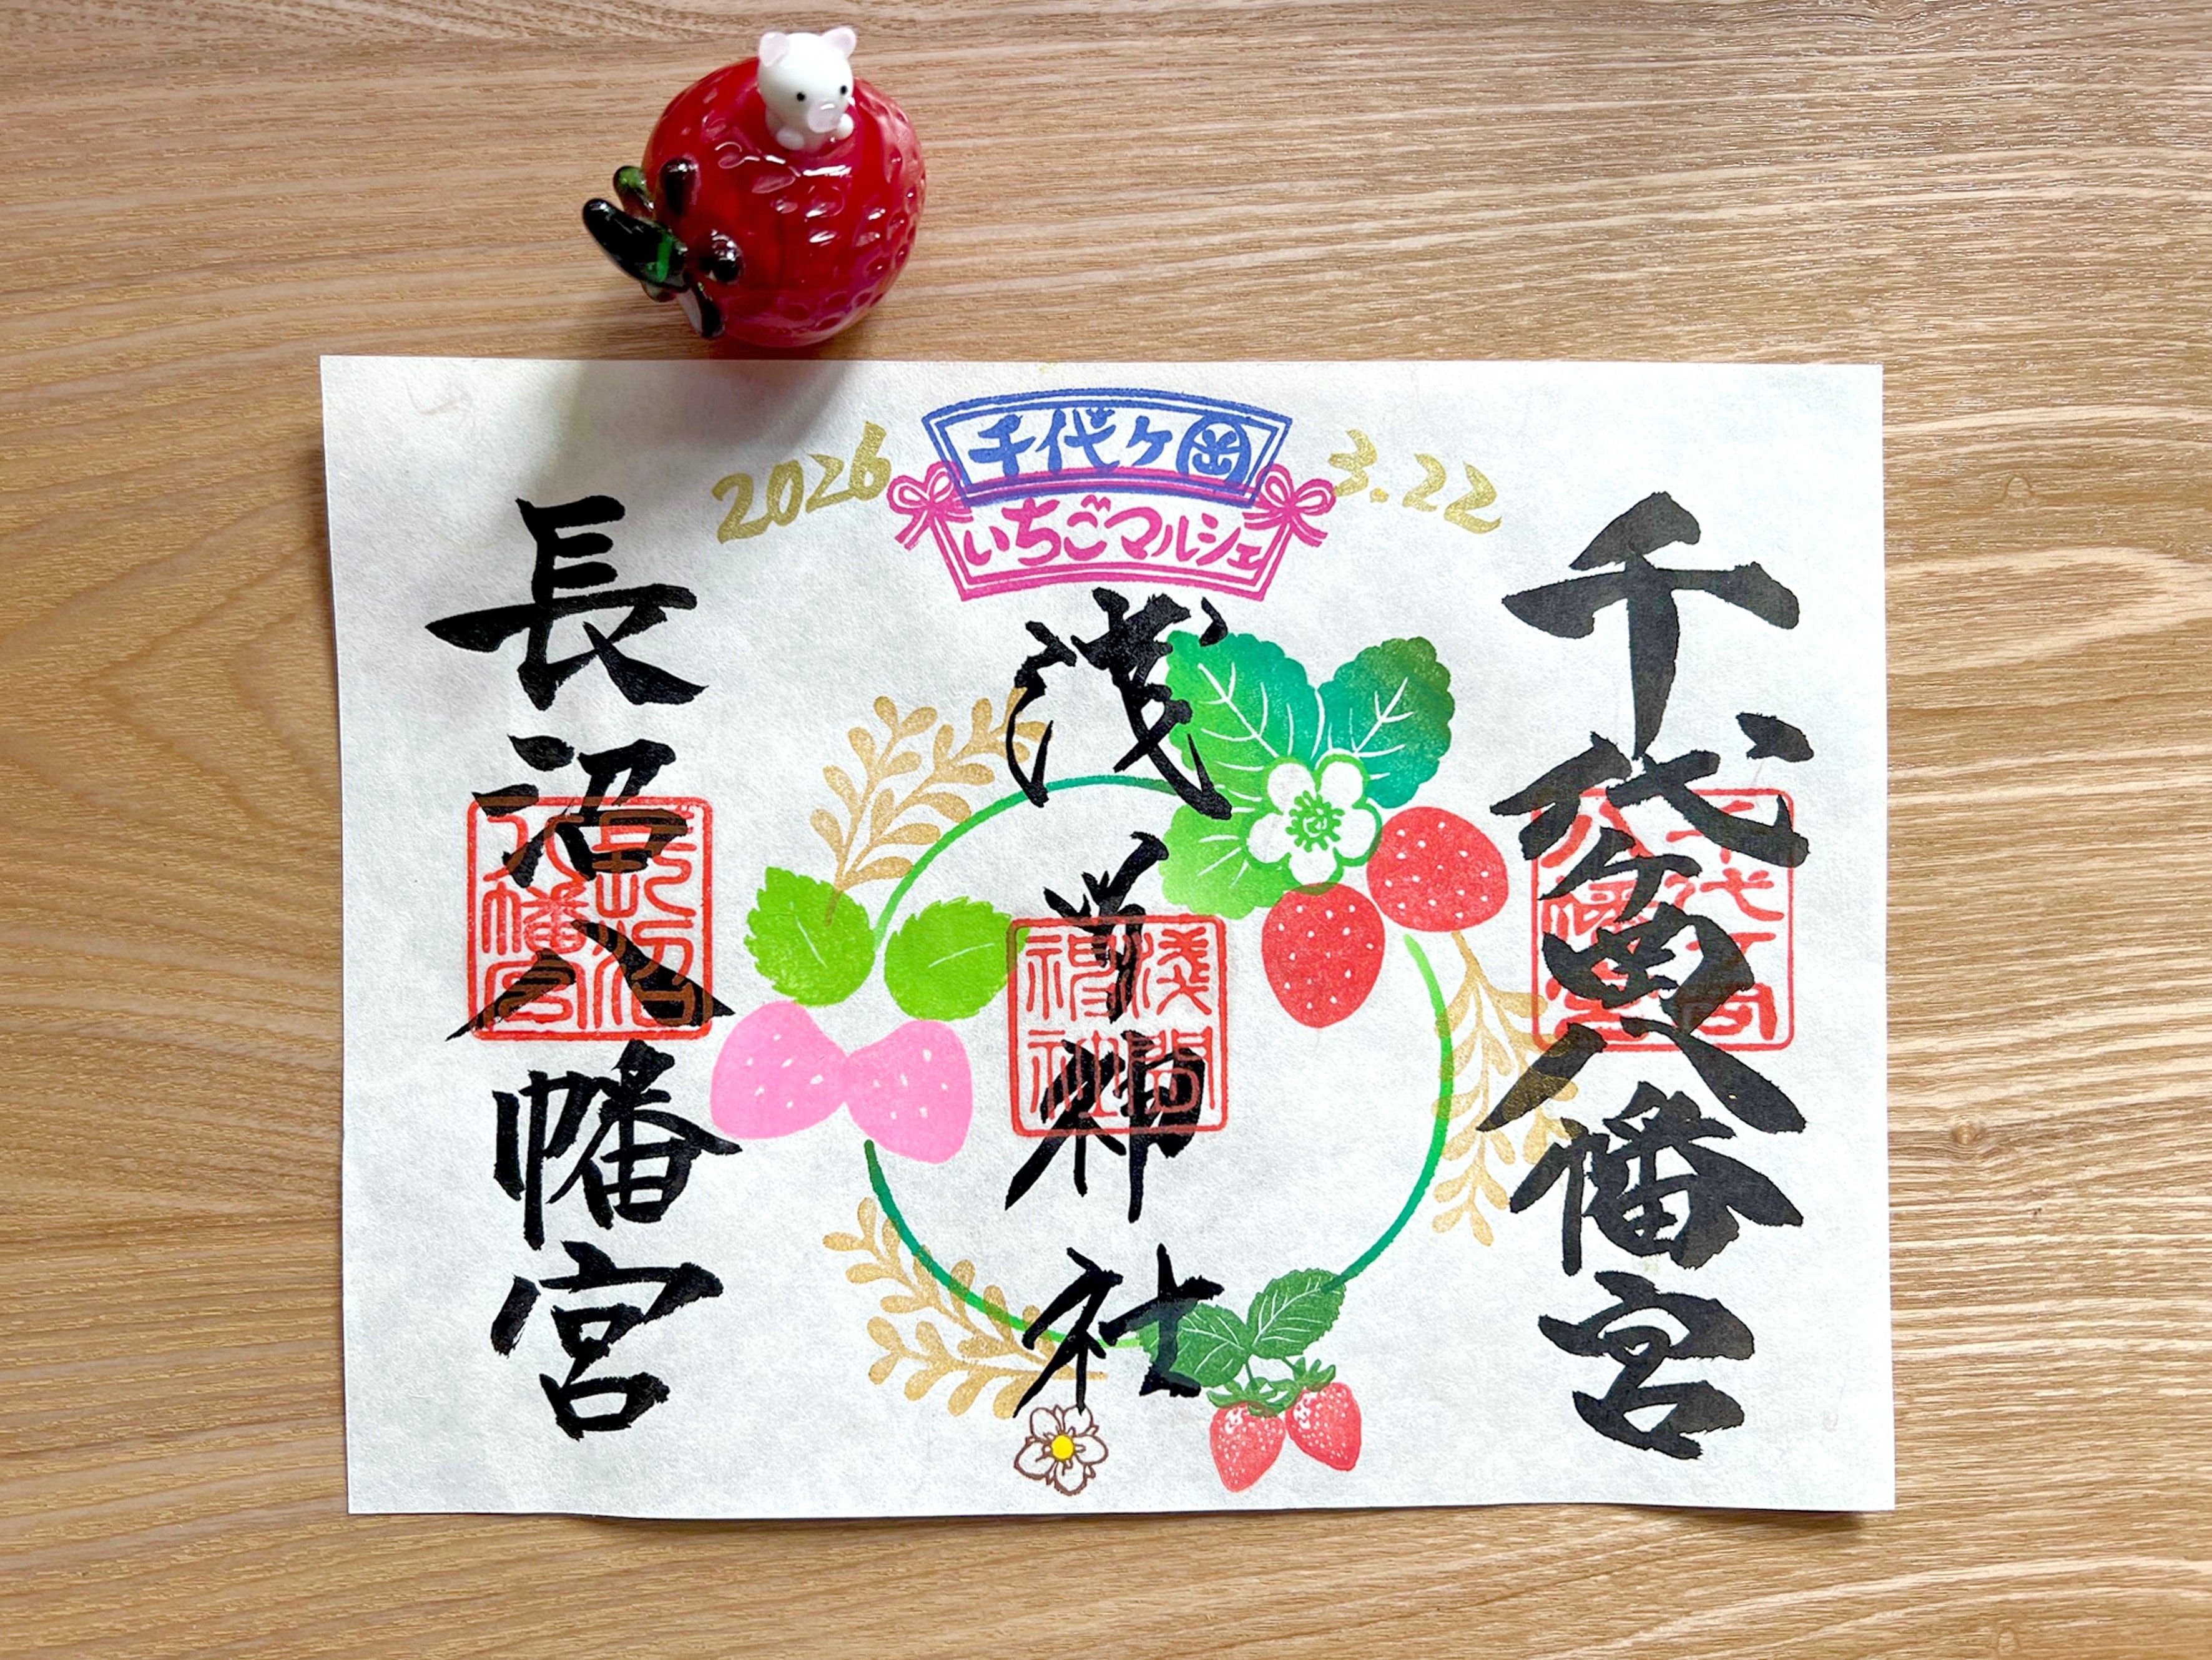 2026
千代ヶ岡
いちごマルシェ
3.22
千代ヶ岡八幡宮
浅間神社
淺間
神社
長沼八幡宮
長沼
八幡宮